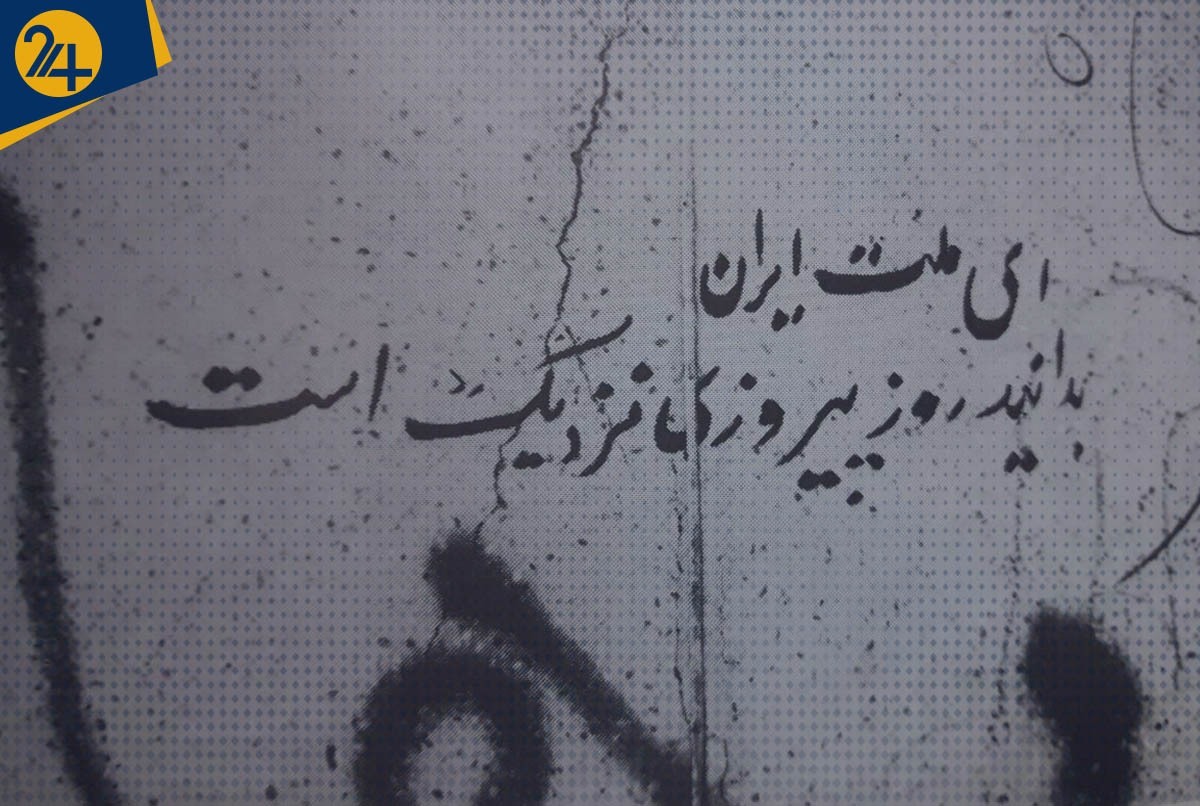 24
ای ملت ایران
بدانید روز پیروزی نزدیک است